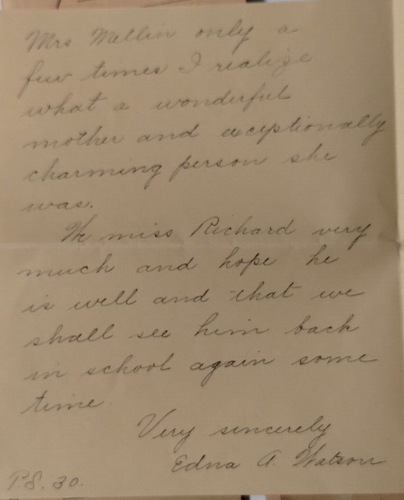 Mrs Mellin only a
few times I realize
what a wonderful
mother and exceptionally
charming person she
was.
We miss Richard very
much and hope he
is well and that we
shall see him back
in school again some
time
Very sincerely
Edna A. Watson
P.S. 30.